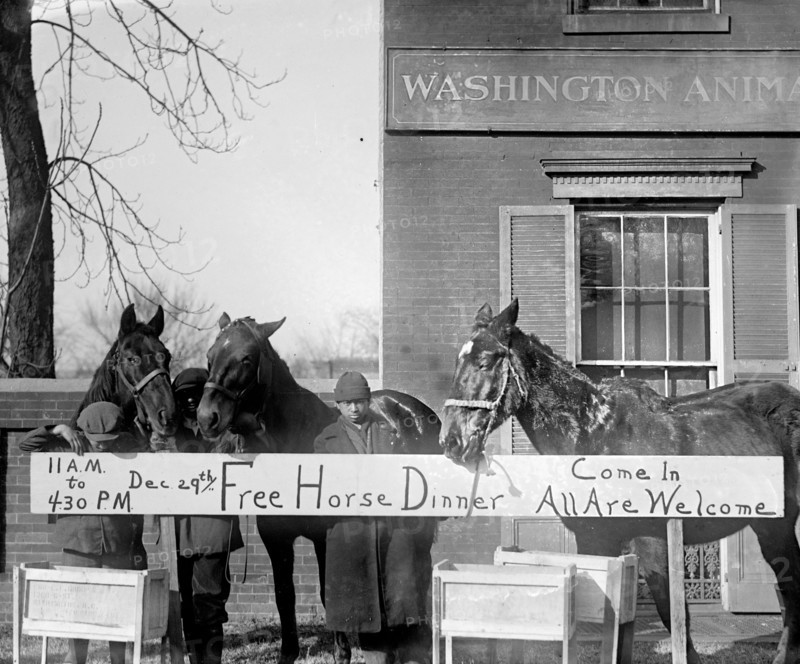 WASHINGTON ANIMA
11 A.M. to 4:30 P.M. Dec 29th Free Horse Dinner Come In
All Are Welcome
PHOTO12